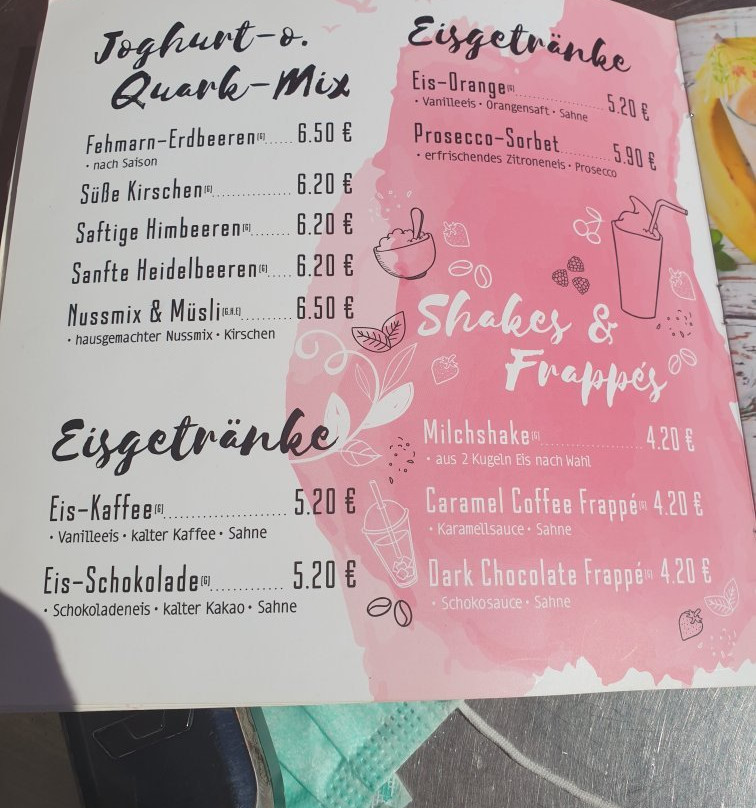 Joghurt-o.
Quark-Mix
Fehmarn-Erdbeeren(G)...... 6.50 €
• nach Saison
Süße Kirschen(G)................ 6.20 €
Saftige Himbeeren(G)........ 6.20 €
Sanfte Heidelbeeren(G)..... 6.20 €
Nussmix & Müsli(G,H,E)........... 6.50 €
• hausgemachter Nussmix • Kirschen
Eisgetränke
Eis-Kaffee(G)......................... 5.20 €
• Vanilleeis • kalter Kaffee • Sahne
Eis-Schokolade(G)............... 5.20 €
• Schokoladeneis • kalter Kakao • Sahne
Eisgetränke
Eis-Orange(G)................... 5.20 €
• Vanilleeis • Orangensaft • Sahne
Prosecco-Sorbet........... 5.90 €
• erfrischendes Zitroneneis • Prosecco
Shakes &
Frappés
Milchshake(G)...................... 4.20 €
• aus 2 Kugeln Eis nach Wahl
Caramel Coffee Frappé(G) 4.20 €
• Karamellsauce • Sahne
Dark Chocolate Frappé(G) 4.20 €
• Schokosauce • Sahne